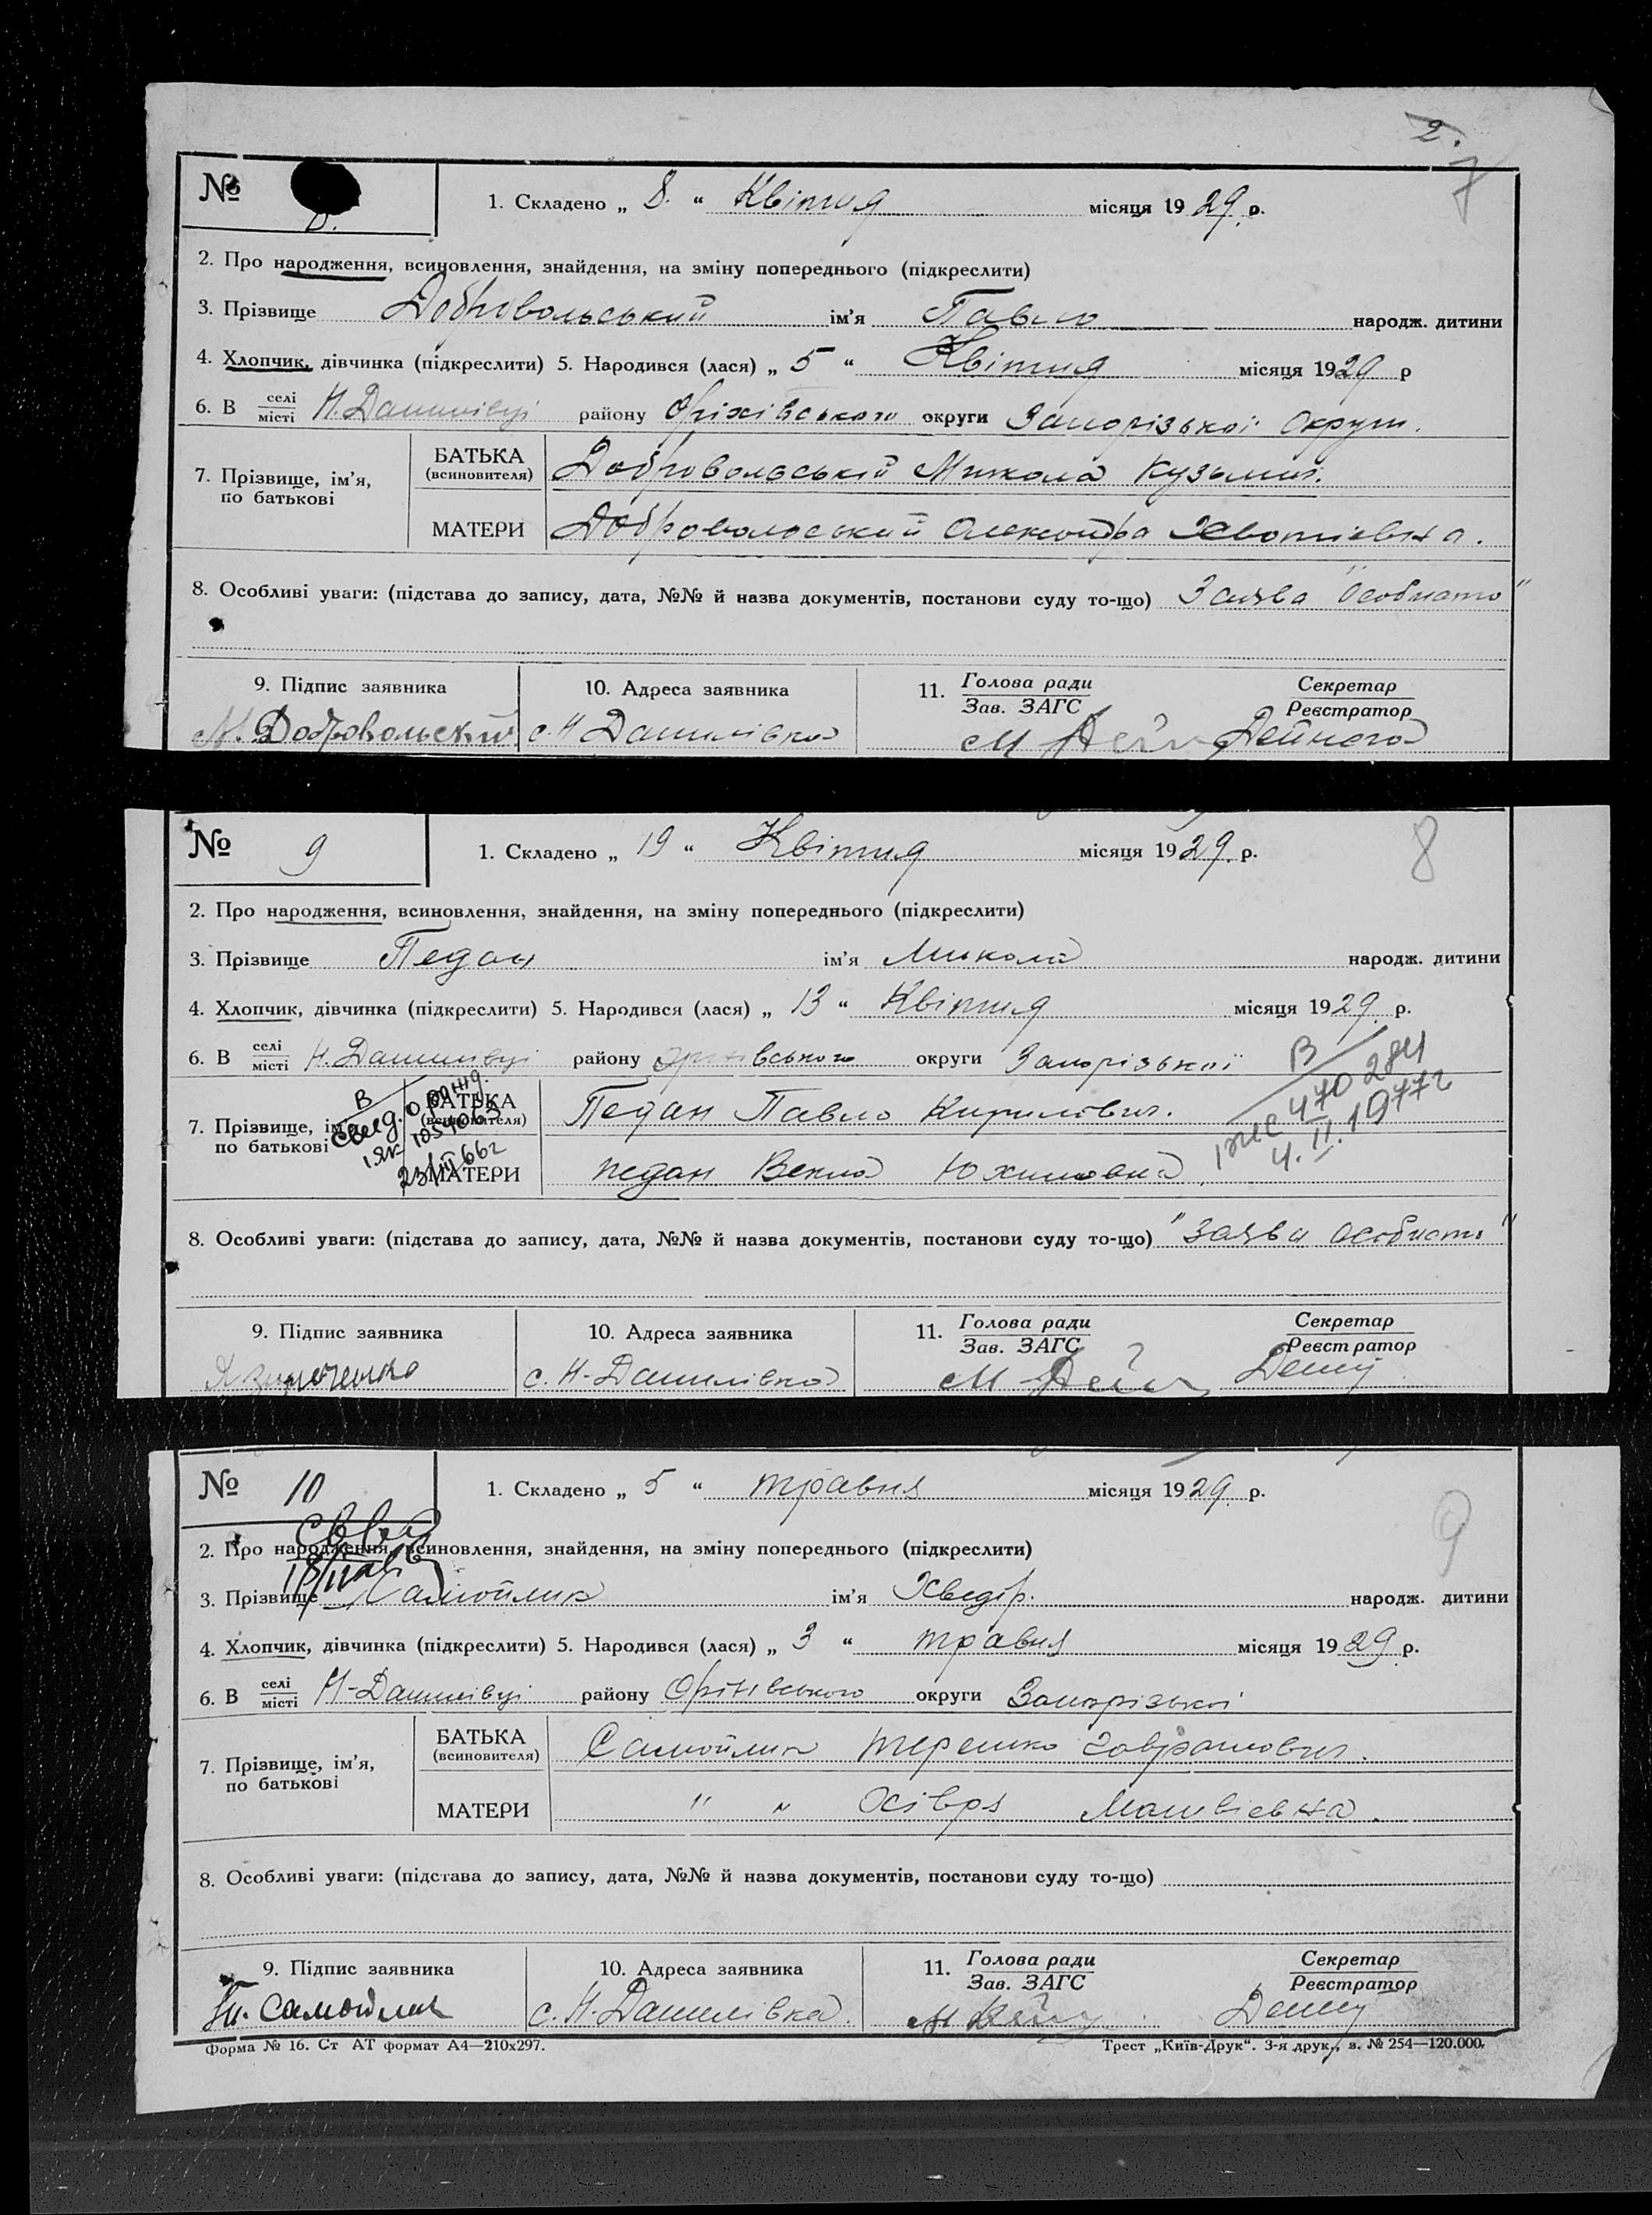 2.
7
№ 8.
1. Складено „ 8. “ Квітня місяця 1929. р.
2. Про народження, всиновлення, знайдення, на зміну попереднього (підкреслити)
3. Прізвище Добровольський ім'я Павло народж. дитини
4. Хлопчик, дівчинка (підкреслити) 5. Народився (лася) „ 5 “ Квітня місяця 1929 р
6. В селі місті Н. Данилівці району Оріхівського округи Запорізької округи.
7. Прізвище, ім'я, по батькові
БАТЬКА (всиновителя) Добровольській Микола Кузьмич.
МАТЕРИ Добровольський Олександра Хвотіевна.
8. Особливі уваги: (підстава до запису, дата, №№ й назва документів, постанови суду то-що) Заява "Особисто"
9. Підпис заявника
10. Адреса заявника
11. Голова ради Зав. ЗАГС
Секретар Реєстратор
М. Добровольский с. Н Данилівка М Дейн Дейнега
№ 9
1. Складено „ 19 “ Квітня місяця 1929. р.
8
2. Про народження, всиновлення, знайдення, на зміну попереднього (підкреслити)
3. Прізвище Педан ім'я Микола народж. дитини
4. Хлопчик, дівчинка (підкреслити) 5. Народився (лася) „ 13 “ Квітня місяця 1929. р.
6. В селі місті Н. Данилівці району Оріхівського округи Запорізької
В
1 ЖС 470284
4.II.1977г
В
свид. о рожд.
1 ЯК 1054063
23/II 66г
7. Прізвище, ім'я, по батькові
БАТЬКА (всиновителя) Педан Павло Кирилович.
МАТЕРИ Педан Векла Юхимовна
8. Особливі уваги: (підстава до запису, дата, №№ й назва документів, постанови суду то-що) "Заява особисто"
9. Підпис заявника
10. Адреса заявника
11. Голова ради Зав. ЗАГС
Секретар Реєстратор
с. Н-Данилівка М Дейн
№ 10
1. Складено „ 5 “ травня місяця 1929. р.
9
2. Про народження, всиновлення, знайдення, на зміну попереднього (підкреслити)
3. Прізвище Самойлик ім'я Хведір. народж. дитини
4. Хлопчик, дівчинка (підкреслити) 5. Народився (лася) „ 3 “ травня місяця 1929 р.
6. В селі місті Н-Данилівці району Оріхівського округи Запорізької
7. Прізвище, ім'я, по батькові
БАТЬКА (всиновителя) Самойлик Терешко Говрамович.
МАТЕРИ " " Матвіевна.
8. Особливі уваги: (підстава до запису, дата, №№ й назва документів, постанови суду то-що)
9. Підпис заявника
10. Адреса заявника
11. Голова ради Зав. ЗАГС
Секретар Реєстратор
Самойлик с. Н-Данилівка. М Дейн
Форма № 16. Ст АТ формат А4—210х297.
Трест „Київ-Друк“. 3-я друк., з. № 254—120.000.